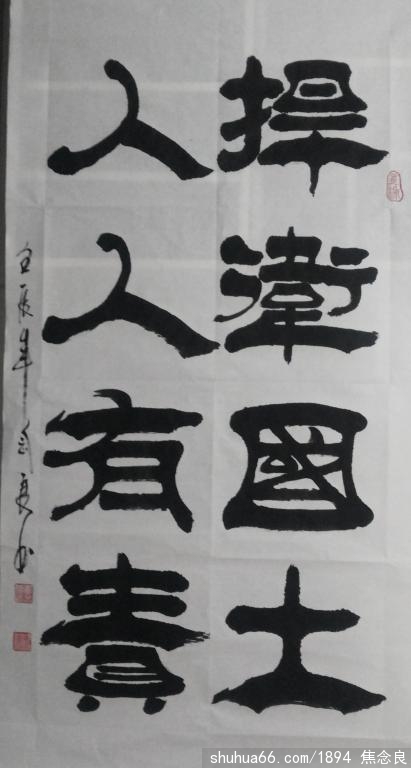 捍衛國土
人人有責
壬辰年
shuhua66.com/1894 焦念良